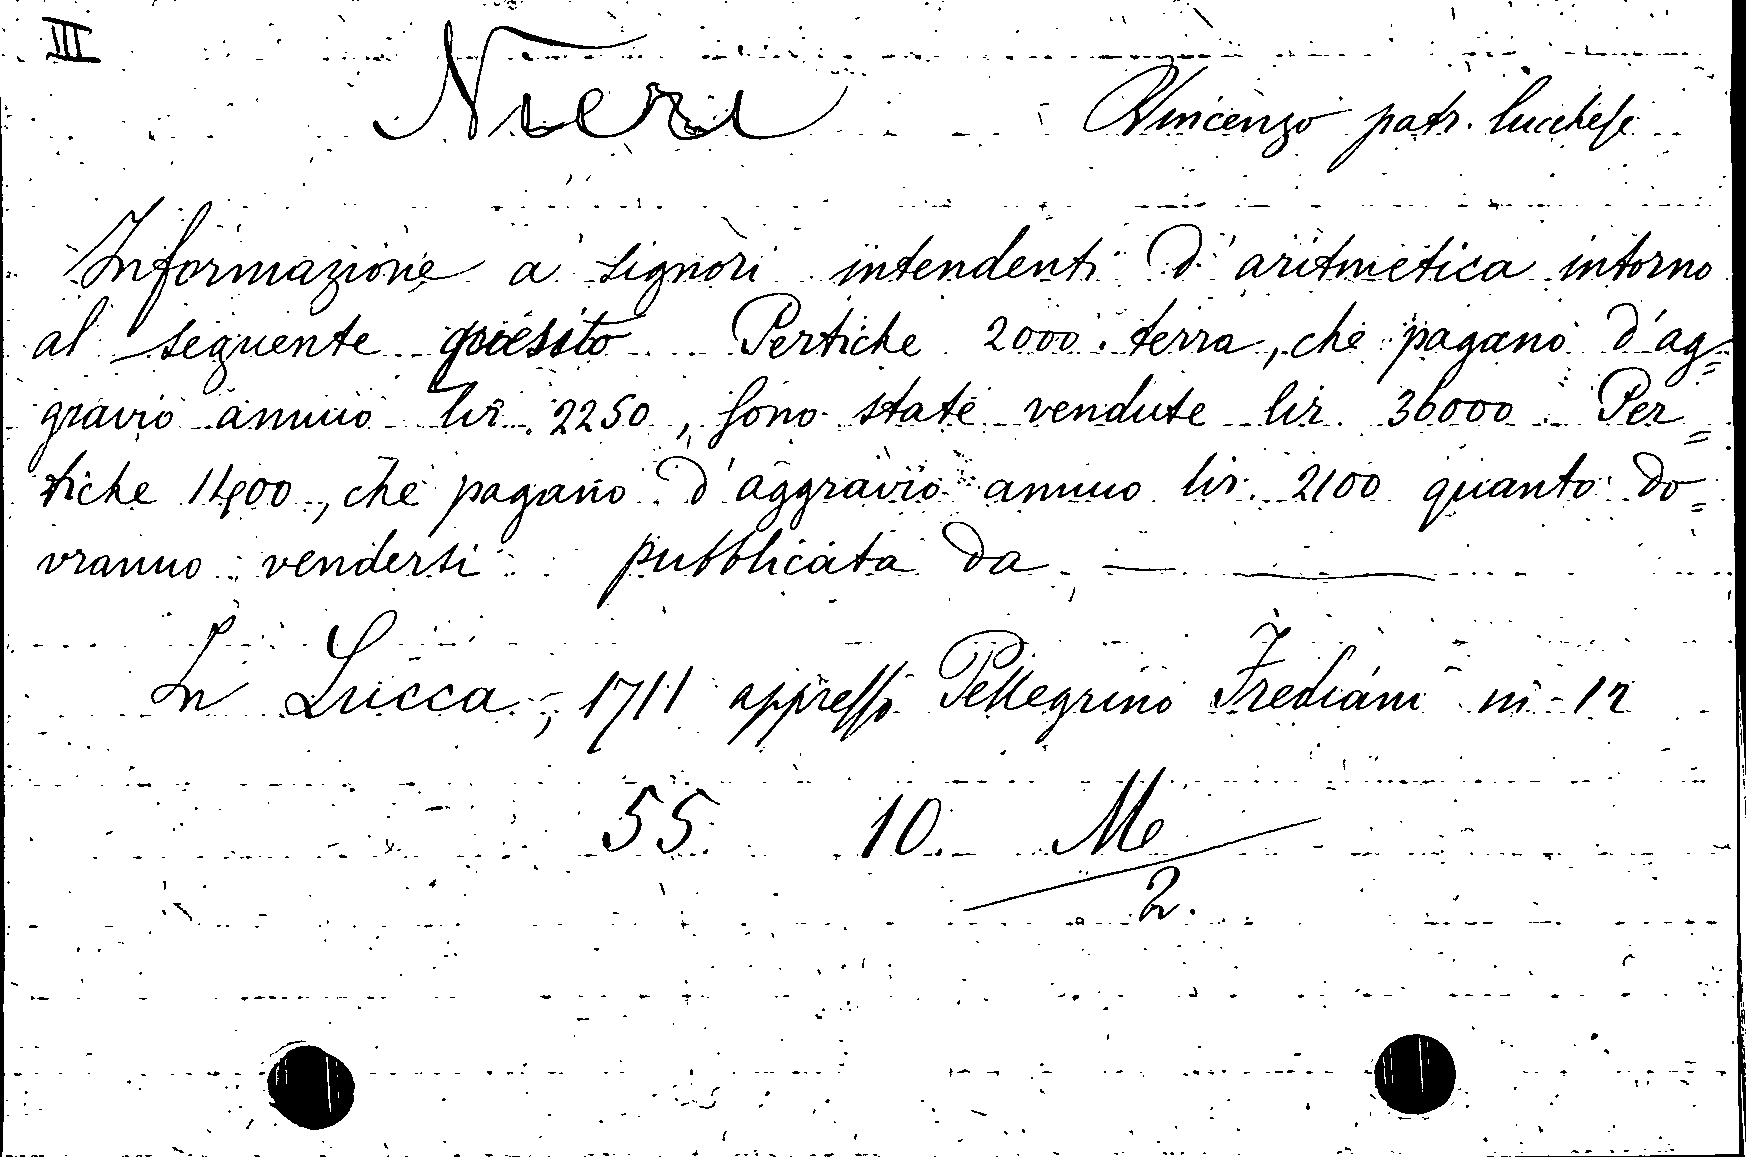 III
Nieri Vincenzo patr. lucchese
Informazione a' signori intendenti d'aritmetica intorno
al seguente quesito Pertiche 2000 terra, che pagano d'ag=
gravio annuo lir. 2250, sono state vendute lir. 36000. Per=
tiche 1400, che pagano d'aggravio annuo lir. 2100 quanto do=
vranno vendersi pubblicata da
In Lucca, 1711 appresso Pellegrino Frediani in-12
55. 10. M
2.